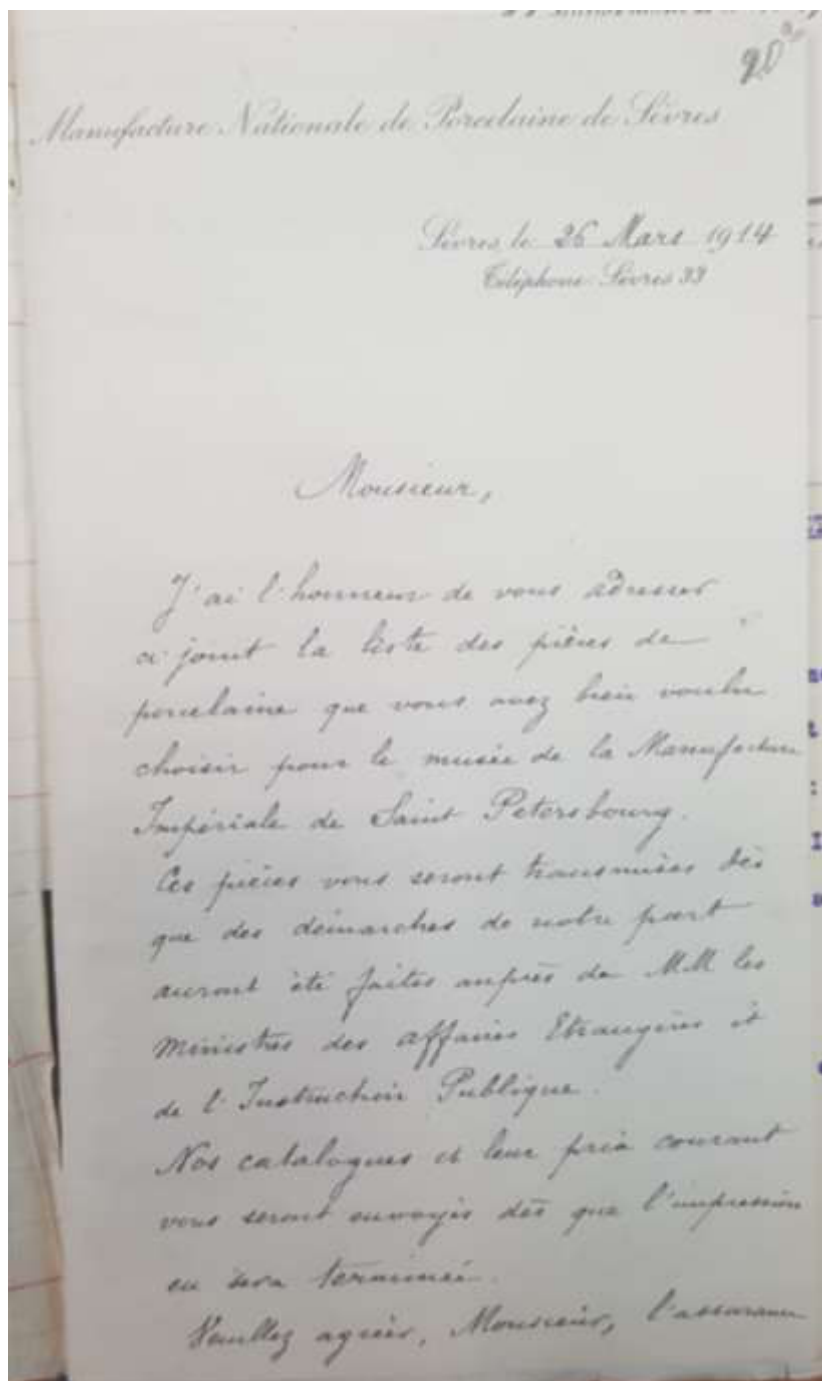 Manufacture Nationale de Porcelaine de Sèvres
Sèvres le 26 Mars 1914
Téléphone Sèvres 33
Monsieur,
J'ai l'honneur de vous adresser
ci joint la liste des pièces de
porcelaine que vous avez bien voulu
choisir pour le musée de la Manufacture
Impériale de Saint Petersbourg.
Ces pièces vous seront transmises dès
que des démarches de notre part
auront été faites auprès de MM les
Ministres des affaires Etrangères et
de l'Instruction Publique.
Nos catalogues et leur prix courant
vous seront envoyés dès que l'impression
en sera terminée.
Veuillez agréer, Monsieur, l'assurance